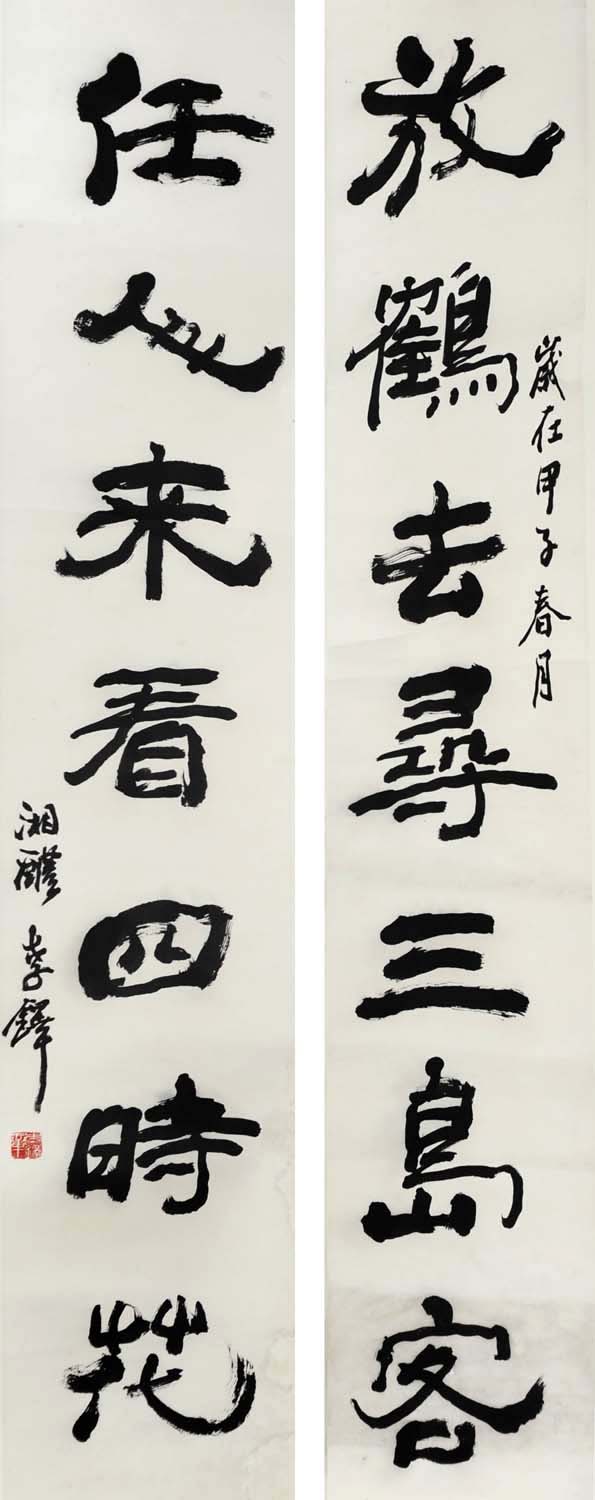 放鶴去尋三島客
歲在甲子春月
任人来看四時花
湘醴 李鐸